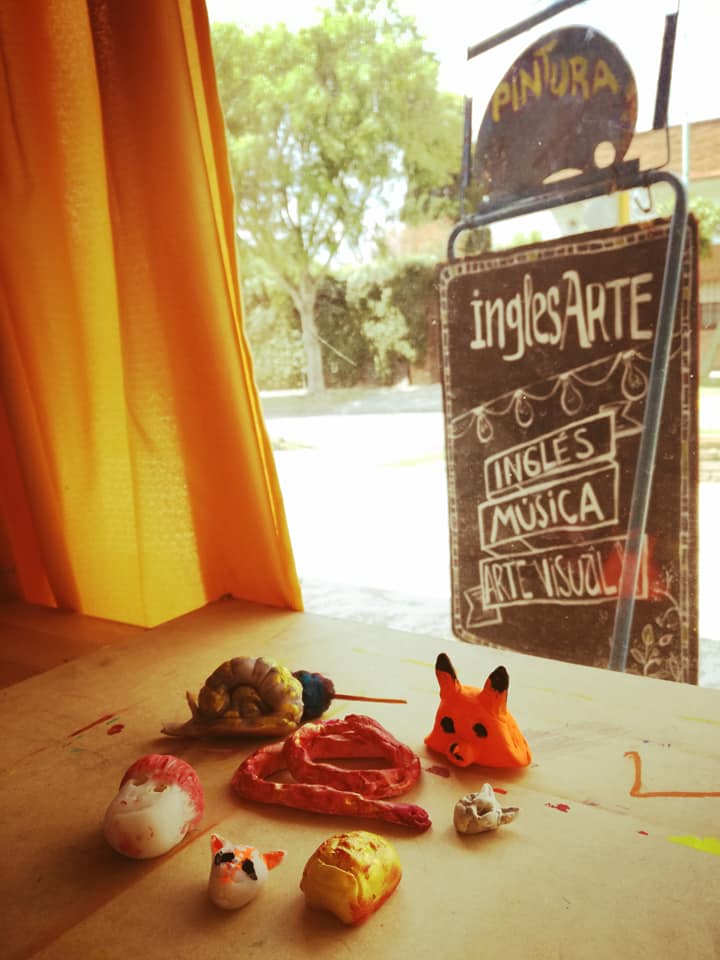 PINTURA
inglesARTE
INGLÉS
MÚSICA
ARTE VISUAL